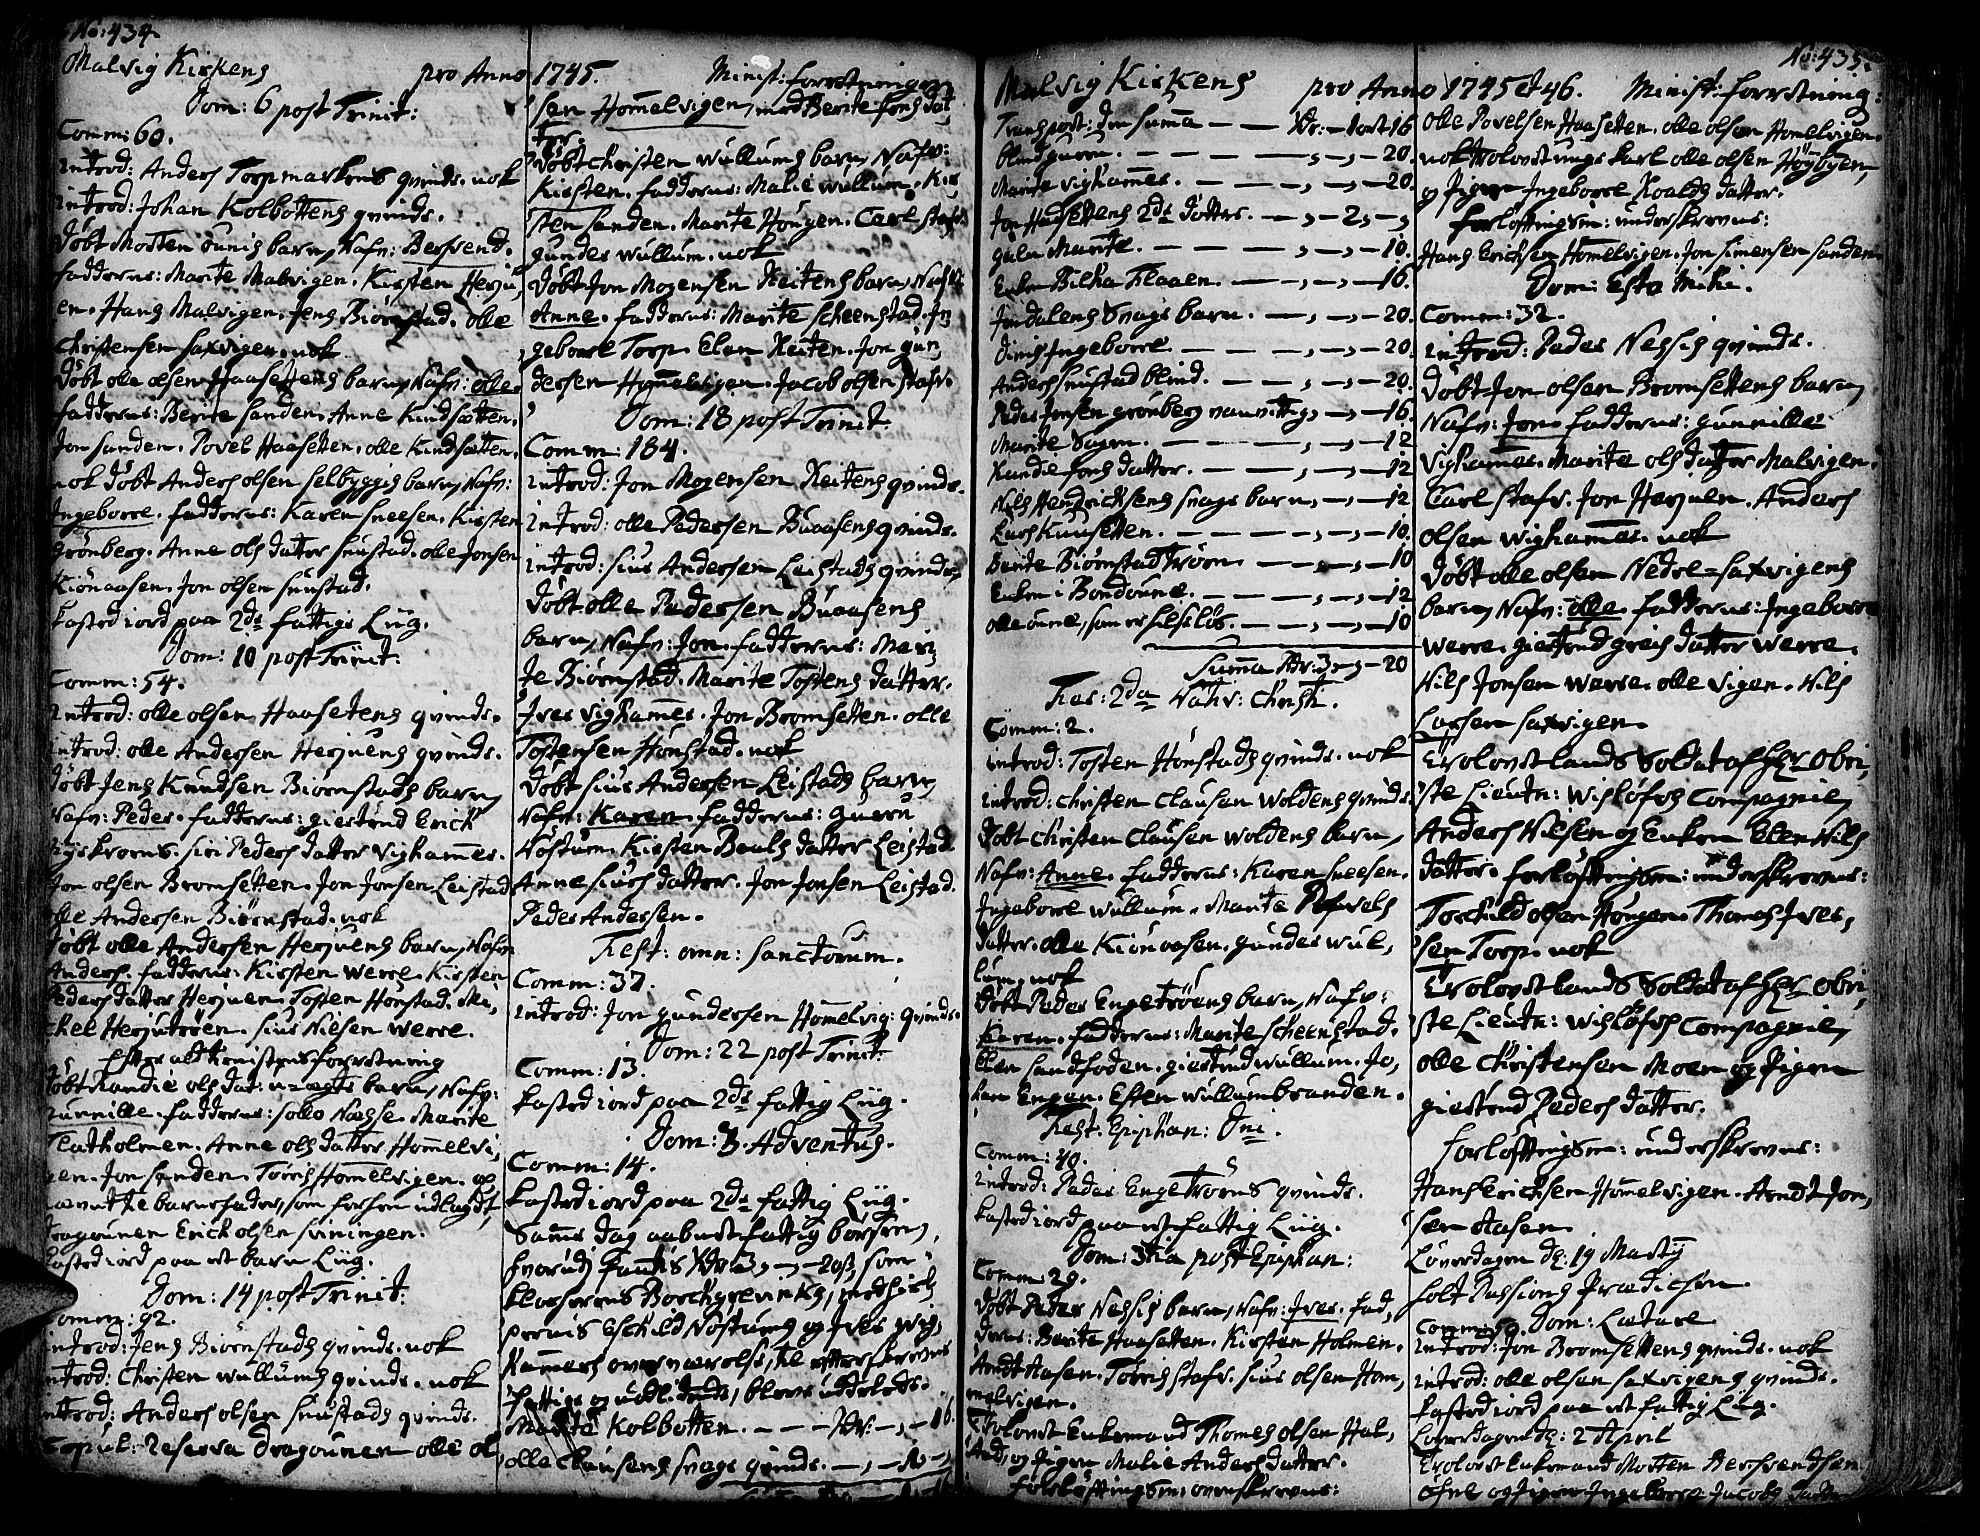 No: 434.
Malvig Kirkens pro Anno
Dom: 6 post Trinit:
Comm: 60.
introd: Anders Torpmarkens qvinde. nok
introd: Johan Kolbottens qvinde.
døbt Morten ounis barn, Nafn: Berhrend.
fadderne: Marite Malvigen. Kirsten Herju,
en. Hans Malvigen. Jens Biørnstad. olle
Christensen saxvigen. nok
døbt olle olsen Haasettens barn, Nafn: olle.
fadderne: Berite sanden. Anne Kindsætten.
Jon sanden. Povel Haasetten. olle Kindsætten.
nok døbt Anders olsen selbyggis barn, Nafn:
Ingeborre. fadderne: Karen sneesen. Kirsten
Grønberg. Anne ols datter snustad. olle Jonsen
Kiønaasen. Jon olsen snustad.
kasted iord paa 2de fattigs Liig.
Dom: 10 post Trinit:
Comm: 54.
introd: olle olsen Haasetens qvinde.
introd: olle Andersen Herjuens qvinde.
døbt Jens Knudsen Biørnstads barn,
Nafn: Peder. fadderne: giertrud Erich
siri Peders datter Vighammer.
Jon olsen Bromsetten. Jon Jonsen Leistad
olle Andersen Biørnstad. nok
døbt olle Andersen Herjuens barn, Nafn
Anders. fadderne: Kirsten werre. Kirsten
Peders datter Herjuen. Tosten Hønstad. Mi,
chel Herjutrøen. sius Nielsen werre.
Efter altt tienistens forretning
døbt Randie ols dat: u-ægte barn, Nafn:
Gunnille. fadderne: Marite
Flatholmen. Anne ols datter Hommelvi,
gen. Jon sanden. Tørris Hommelvigen. og
nævnte barnefader, som forhen udlagdt,
dragounen Erich olsen sviningen.
kasted iord paa et barn Liig.
Dom: 14 post Trinit:
Comm: 92.
introd: Jens Biørnstads qvinde. nok
introd: Christen wullums qvinde. nok
introd: Anders olsen snustads qvinde.
Copul: reserva dragounen olle ol,
1745. Minist: forretninger
sen Hommelvigen, med Berite Jons dat
ter.
døbt Christen wullums barn, Nafn:
Kirsten. fadderne: Malie wullum. Kir
sten sanden. Marite Hougen. Carl stafr.
gunder wullum. nok
døbt Jon Mogensen Reitens barn, Nafn:
Anne. fadderne: Marite scheenstad. In
geborre Torp. Elen Reiten. Jon gun
dersen Hommelvigen. Jacob olsen stafr.
Dom: 18 post Trinit:
Comm: 184.
introd: Jon Mogensen Reitens qvinde.
introd: olle Pedersen Buaasens qvinde.
introd: sius Andersen Leistads qvinde.
døbt olle Pedersen Buaasens
barn, Nafn: Jon. fadderne: Mari
te Biørnstad. Marite Tostens datter.
Iver vighammer. Jon Bromsetten. olle
Tostensen Hønstad. nok
døbt sius Andersen Leistads barn,
Nafn: Karen. fadderne:
Nøstum. Kirsten Pouls datter Leistad
Anne siurs datter. Jon Jonsen Leistad.
Peder Andersen.
Fest: omn: sanctorum.
Comm: 37.
introd: Jon gundersen Hommelvig: qvinde.
Dom: 22 post Trinit:
Comm: 13.
kasted iord paa 2de fattig Liig.
Dom: 3 Adventus.
Comm: 14.
kasted iord paa 2de fattig Liig.
Samme dag aabnet fattig børsen,
hvorudj fandtis Rdr 3,-,-20ß, som
klocherens Borchgrevinks, medhiel
pernis Eschild Nøstums og Iver wig,
hammers overværelse, til efterskrevne
fattige, bleve uddeelede.
Marite Kolbotten. - - - Rdr: -,-16.
olle Clausens svage qvinde. -,-
No: 435.
Malvig Kirkens pro Anno
Transport: den summa - - Rdr: - 1 ort 16
blind - - -,-,-20.
Marite vighammer. - - -,-,-20.
Jon Haasettens 2de døttre. - -,-2,-,
galn Marite. - - -,-,-10.
Enken Bilha Flaaen. - -,-,-16.
Jondalens svage barn. - -,-,-20.
Ingeborre. - - -,-,-20.
Anders snustad blind. - -,-,-20.
Peder Jonsen grønberg vanvittig, -,-16.
Marite - - -,-,-12
Randie Jons datter. - -,-,-12
Nils Hendrichsens svage barn, -,-12
Lars Kunsetten. - - -,-,-10.
Berite Biørnstadtrøen - -,-,-10
Enken i Bondoune. - -,-,-12
olle oune, som er - -,-,-10
Summa Rdr: 3,-,-20
Fer: 2da Nativ: Christi.
Comm: 2.
introd: Tosten Hønstads qvinde. nok
introd: Christen Clausen Woldens qvinde.
døbt Christen Clausen woldens barn,
Nafn: Anne. fadderne: Karen sneesen.
Ingeborre wullum. Marite Povels
datter. olle Kiønaasen. gunder wul,
lum. nok
døbt Peder Engetrøens barn, Nafn:
Karen. fadderne: Marite scheenstad.
Elen sandfoden. giertrud wullum. Jo,
han Engen. Esten wullumbranden.
Fest: Epiphan: Dni.
Comm: 40.
introd: Peder Engetrøens qvinde.
kasted iord paa et fattig Liig.
Dom: 3tia post Epiphan:
Comm: 29.
døbt Peder Nessis barn, Nafn: Iver. fad,
derne: Berite Haasetten. Kirsten Holmen.
Arndt Hasen. Tørris stafr. sius olsen Hom,
melvigen.
Trolovet Enkemand Thomes olsen Hal,
stad, og Pigen Malie Anders datter.
forløftingsm: overskrevne:
1745 et 46. Minist: forretning:
olle Povelsen Haasetten. olle olsen Hommelvigen.
nok trolovet ungs karl olle olsen Høybyen,
og Pigen Ingeborre Roalds datter.
forløftingsm: underskrevne:
Hans Erichsen Hommelvigen. Jon simensen sanden
Dom: Esto Mihi.
Comm: 32.
introd: Peder Nessis qvinde.
døbt Jon olsen Bromsettens barn,
Nafn: Jon. fadderne: gunnille
Vighammer. Marite ols datter Malvigen.
Carl stafr. Jon Herjuen. Anders
olsen wighammer. nok
døbt olle olsen Nedre-saxvigens
barn, Nafn: olle. fadderne: Ingeborre
werre. giertrud greis datter werre.
Nils Jonsen werre. olle vigen. Nils
Larsen saxvigen.
Trolovet lands Soldat af Hr. Obri,
ste Lieutn: Wisløfs Compagnie,
Anders Nilsen og Enken Elen Nils
datter. forløftingsm: underskrevne:
Torchild olsen Hougen. Thomas Iver,
sen Torp. nok
Trolovet lands Soldat af Hr. Obri,
ste Lieutn: Wisløfs Compagnie,
olle Christensen Moen og Pigen
giertrud Peders datter.
Forløfftingsm: underskrevne:
Hans Erichsen Hommelvigen. Arndt Jon,
sen Hasen.
Løverdagen d: 19 Martij
holt Passions Prædichen
Comm: 50. Dom: Lætare
introd: Jon Bromsettens qvinde. nok
introd: olle olsen saxvigens qvinde.
kasted iord paa et fattig Liig.
Løverdagen d: 2 April
Trolovet Enkemand Morten Berhrendsen
og Pigen Ingeborre Jacobs datter